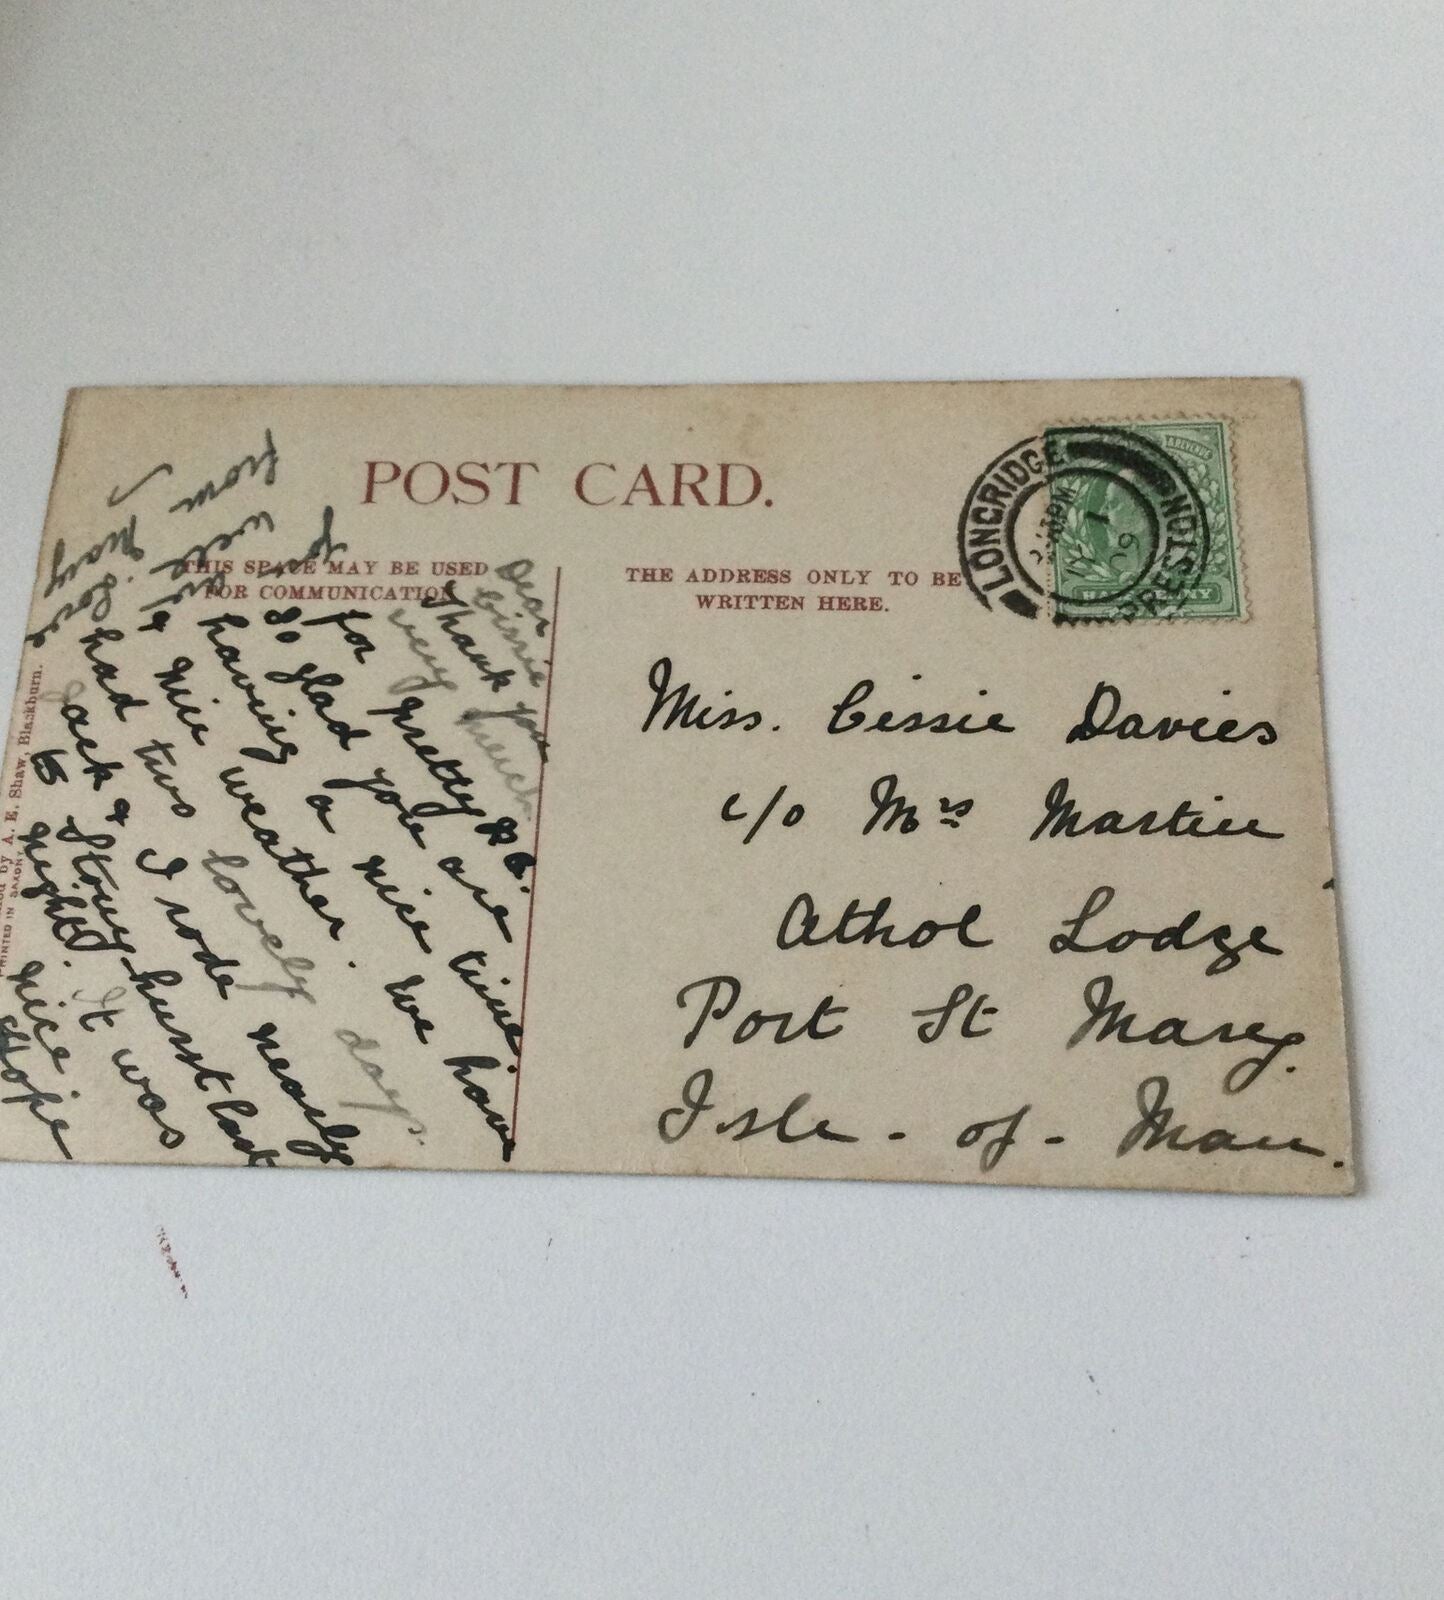 POST CARD.
THIS SPACE MAY BE USED
FOR COMMUNICATION
THE ADDRESS ONLY TO BE
WRITTEN HERE.
LONGRIDGE
PRESTON
09
HALFPENNY
Miss. Cissie Davies
c/o Mrs Martin
Athol Lodge
Port St Mary.
Isle-of-Man.
Dear
Cissie
Thank you
very much
for pretty P.C.
So glad you are
having a nice time.
nice weather. We have
had two lovely days.
Jack & I rode nearly
to Stonyhurst last
night. It was
nice. Hope
you
well
from
May
by A. E. Shaw, Blackburn.
PRINTED IN SAXONY